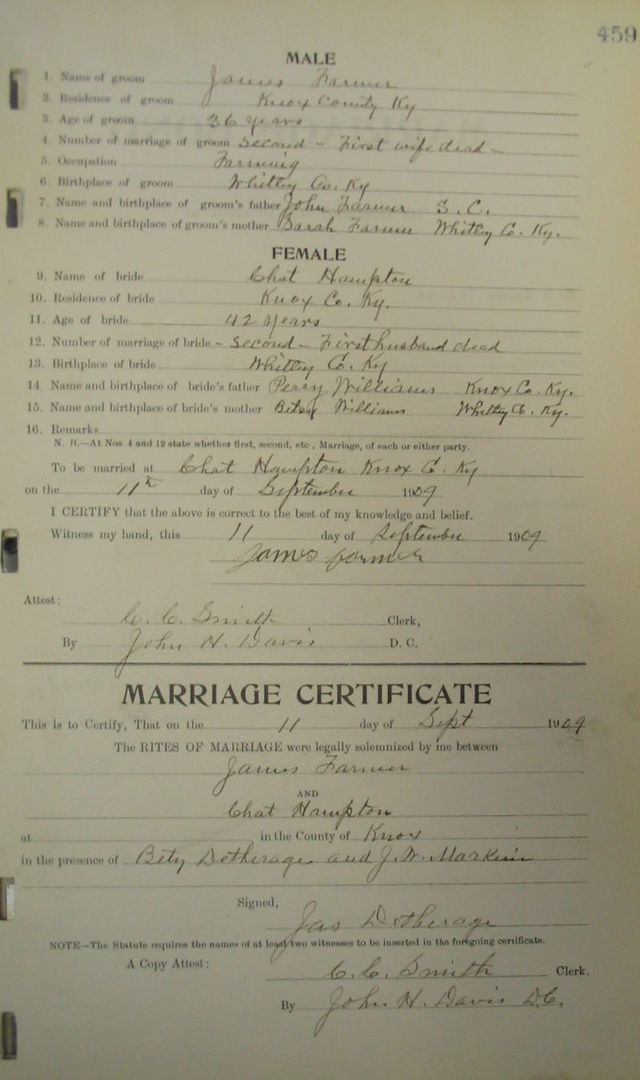 459
MALE
1. Name of groom James Farmer
2. Residence of groom Knox County Ky
3. Age of groom 36 years
4. Number of marriage of groom Second - First wife dead -
5. Occupation Farming
6. Birthplace of groom Whitley Co. Ky
7. Name and birthplace of groom's father John Farmer S. C.
8. Name and birthplace of groom's mother Sarah Farmer Whitley C. Ky.
FEMALE
9. Name of bride Chat Hampton
10. Residence of bride Knox Co. Ky.
11. Age of bride 42 years
12. Number of marriage of bride - Second - First husband dead
13. Birthplace of bride Whitley Co. Ky
14 Name and birthplace of bride's father Percy Williams Knox Co. Ky.
15. Name and birthplace of bride's mother Betsy Williams Whitley C. Ky.
16. Remarks
N. B.—At Nos. 4 and 12 state whether first, second, etc, Marriage, of each or either party.
To be married at Chat Hampton Knox C. Ky
on the 11th day of September 1909
I CERTIFY that the above is correct to the best of my knowledge and belief.
Witness my hand, this 11 day of September 1909
James farmer
Attest:
C. C. Smith Clerk,
By John H. Davis D. C.
MARRIAGE CERTIFICATE
This is to Certify, That on the 11 day of Sept 1909
The RITES OF MARRIAGE were legally solemnized by me between
James Farmer
AND
Chat Hampton
at in the County of Knox
in the presence of Bety Detherage and J. W.
Signed,
Jas Detherage
NOTE—The Statute requires the names of at least two witnesses to be inserted in the foregoing certificate.
A Copy Attest:
C. C. Smith Clerk.
By John H. Davis D.C.